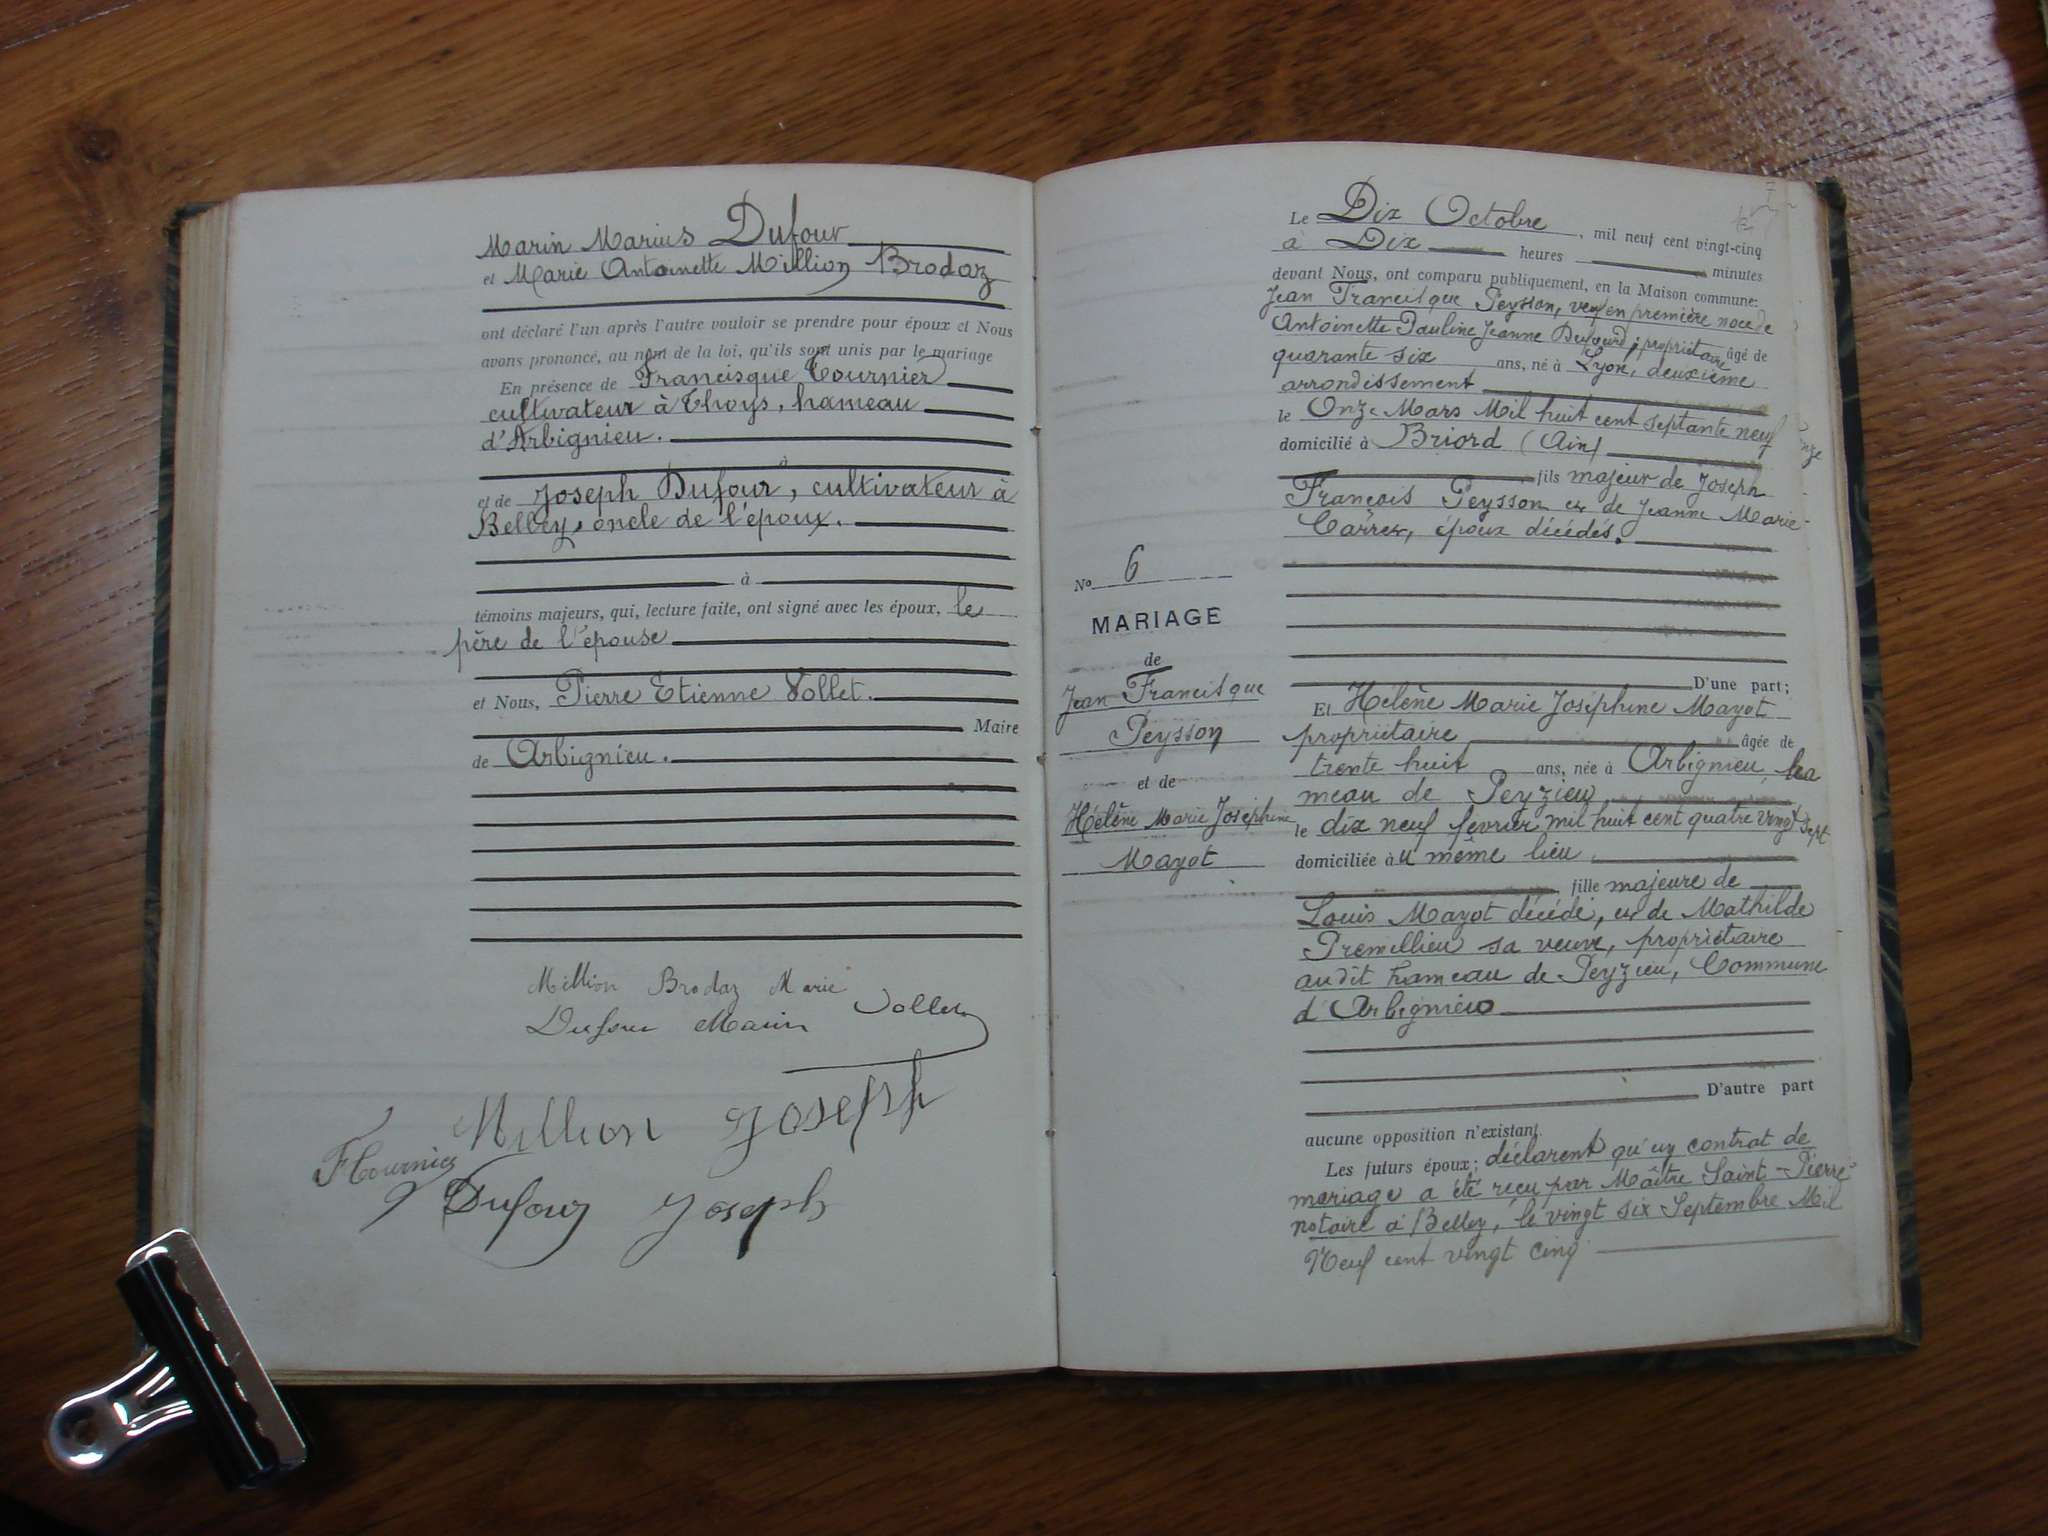 Marin Marius Dufour
et Marie Antoinette Million Brodaz
ont déclaré l'un après l'autre vouloir se prendre pour époux et Nous
avons prononcé, au nom de la loi, qu'ils sont unis par le mariage
En présence de Francisque Tournier
cultivateur à Thoys, hameau
d'Arbignieu.
à
et de Joseph Dufour, cultivateur à
Belley, oncle de l'époux.
à
témoins majeurs, qui, lecture faite, ont signé avec les époux, le
père de l'épouse
et Nous, Pierre Etienne Vollet.
Maire
de Arbignieu.
Million Brodaz Marie
Dufour Marin Vollet
Million Joseph
FTournier
Dufour Joseph
7
Le Dix Octobre, mil neuf cent vingt-cinq
à Dix heures minutes
devant Nous, ont comparu publiquement, en la Maison commune:
Jean Francisque Peysson, veuf en première noce de
Antoinette Pauline Jeanne ; propriétaire âgé de
quarante six ans, né à Lyon, deuxième
arrondissement
le Onze Mars Mil huit cent septante neuf
domicilié à Briord (Ain)
fils majeur de Joseph
François Peysson et de Jeanne Marie
Carrer, époux décédés.
No 6
MARIAGE
de
Jean Francisque
Peysson
et de
Hélène Marie Joséphine
Mayot
D'une part;
Et Hélène Marie Joséphine Mayot
propriétaire âgée de
trente huit ans, née à Arbignieu, ha
meau de Peyzieu
le dix neuf février mil huit cent quatre vingt sept
domiciliée au même lieu
fille majeure de
Louis Mayot décédé, et de Mathilde
Premillieu sa veuve, propriétaire
audit hameau de Peyzieu, Commune
d'Arbignieu
D'autre part
aucune opposition n'existant.
Les futurs époux; déclarent qu'un contrat de
mariage a été reçu par Maître Saint-Pierre
notaire à Belley, le vingt six Septembre Mil
Neuf cent vingt cinq